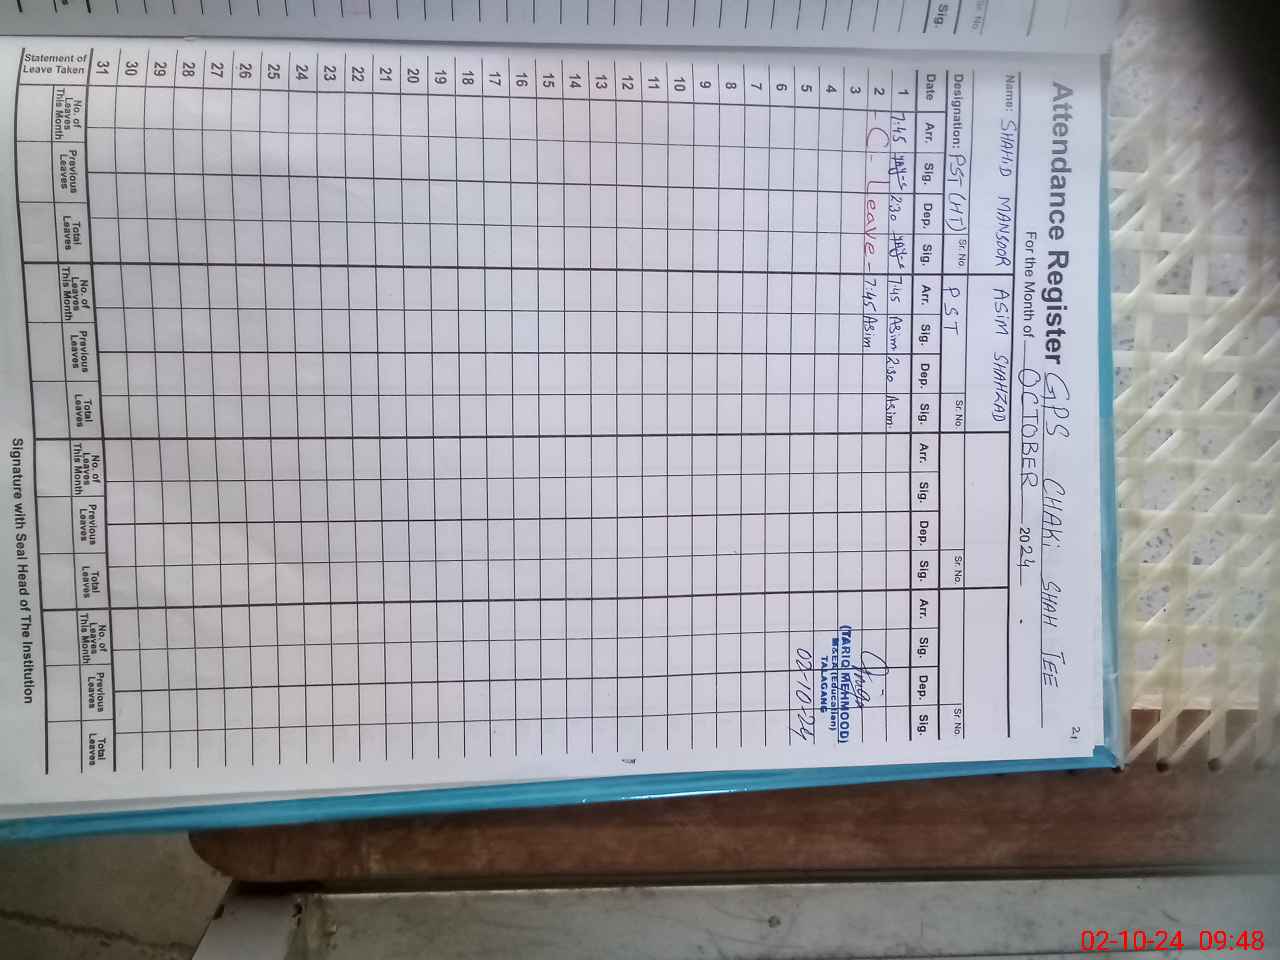 Attendance Register GPS CHAKI SHAH TEE
21
For the Month of OCTOBER 2024
Name: SHAHID MANSOOR ASIM SHAHZAD
Designation: PST (HT) Sr. No. PST Sr. No. Sr. No. Sr. No.
Date Arr. Sig. Dep. Sig. Arr. Sig. Dep. Sig. Arr. Sig. Dep. Sig. Arr. Sig. Dep. Sig.
1 7:45 2:30 7:45 Asim 2:30 Asim
2 - C - Leave - 7:45 Asim
3
4
5
6
7
8
9
10
11
12
13
14
15
16
17
18
19
20
21
22
23
24
25
26
27
28
29
30
31
(TARIQ MEHMOOD)
M&EA (Education)
TALAGANG
02-10-24
Statement of Leave Taken
No. of Leaves This Month Previous Leaves Total Leaves No. of Leaves This Month Previous Leaves Total Leaves No. of Leaves This Month Previous Leaves Total Leaves No. of Leaves This Month Previous Leaves Total Leaves
Signature with Seal Head of The Institution
Sig.
Sr. No.
02-10-24 09:48